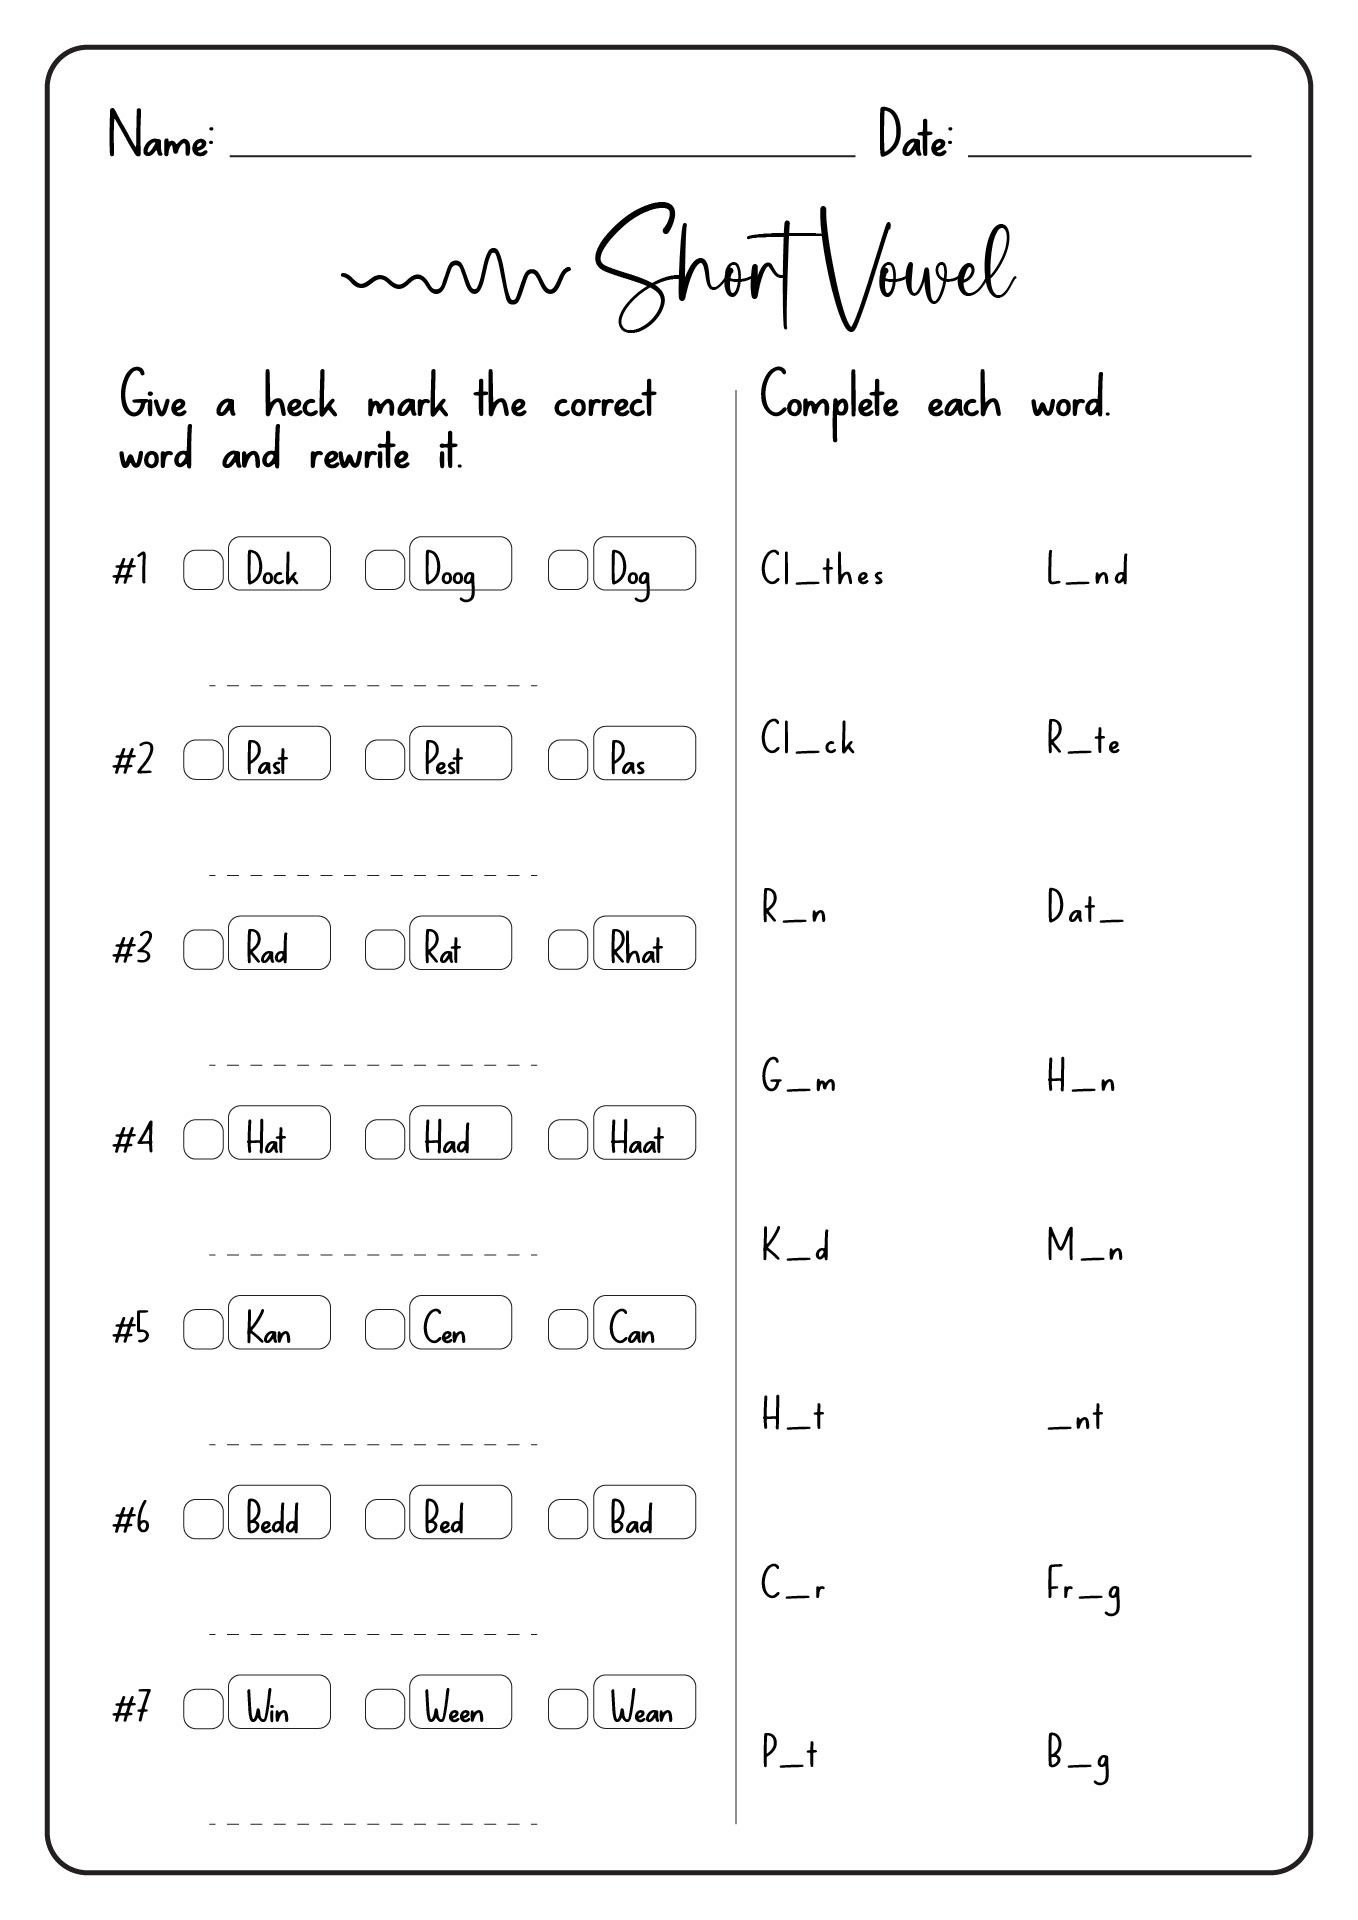 Name: Date:
Short Vowel
Give a heck mark the correct
word and rewrite it.
#1 Dock Doog Dog
#2 Past Pest Pas
#3 Rad Rat Rhat
#4 Hat Had Haat
#5 Kan Cen Can
#6 Bedd Bed Bad
#7 Win Ween Wean
Complete each word.
Cl_thes L_nd
Cl_ck R_te
R_n Dat_
G_m H_n
K_d M_n
H_t _nt
C_r Fr_g
P_t B_g